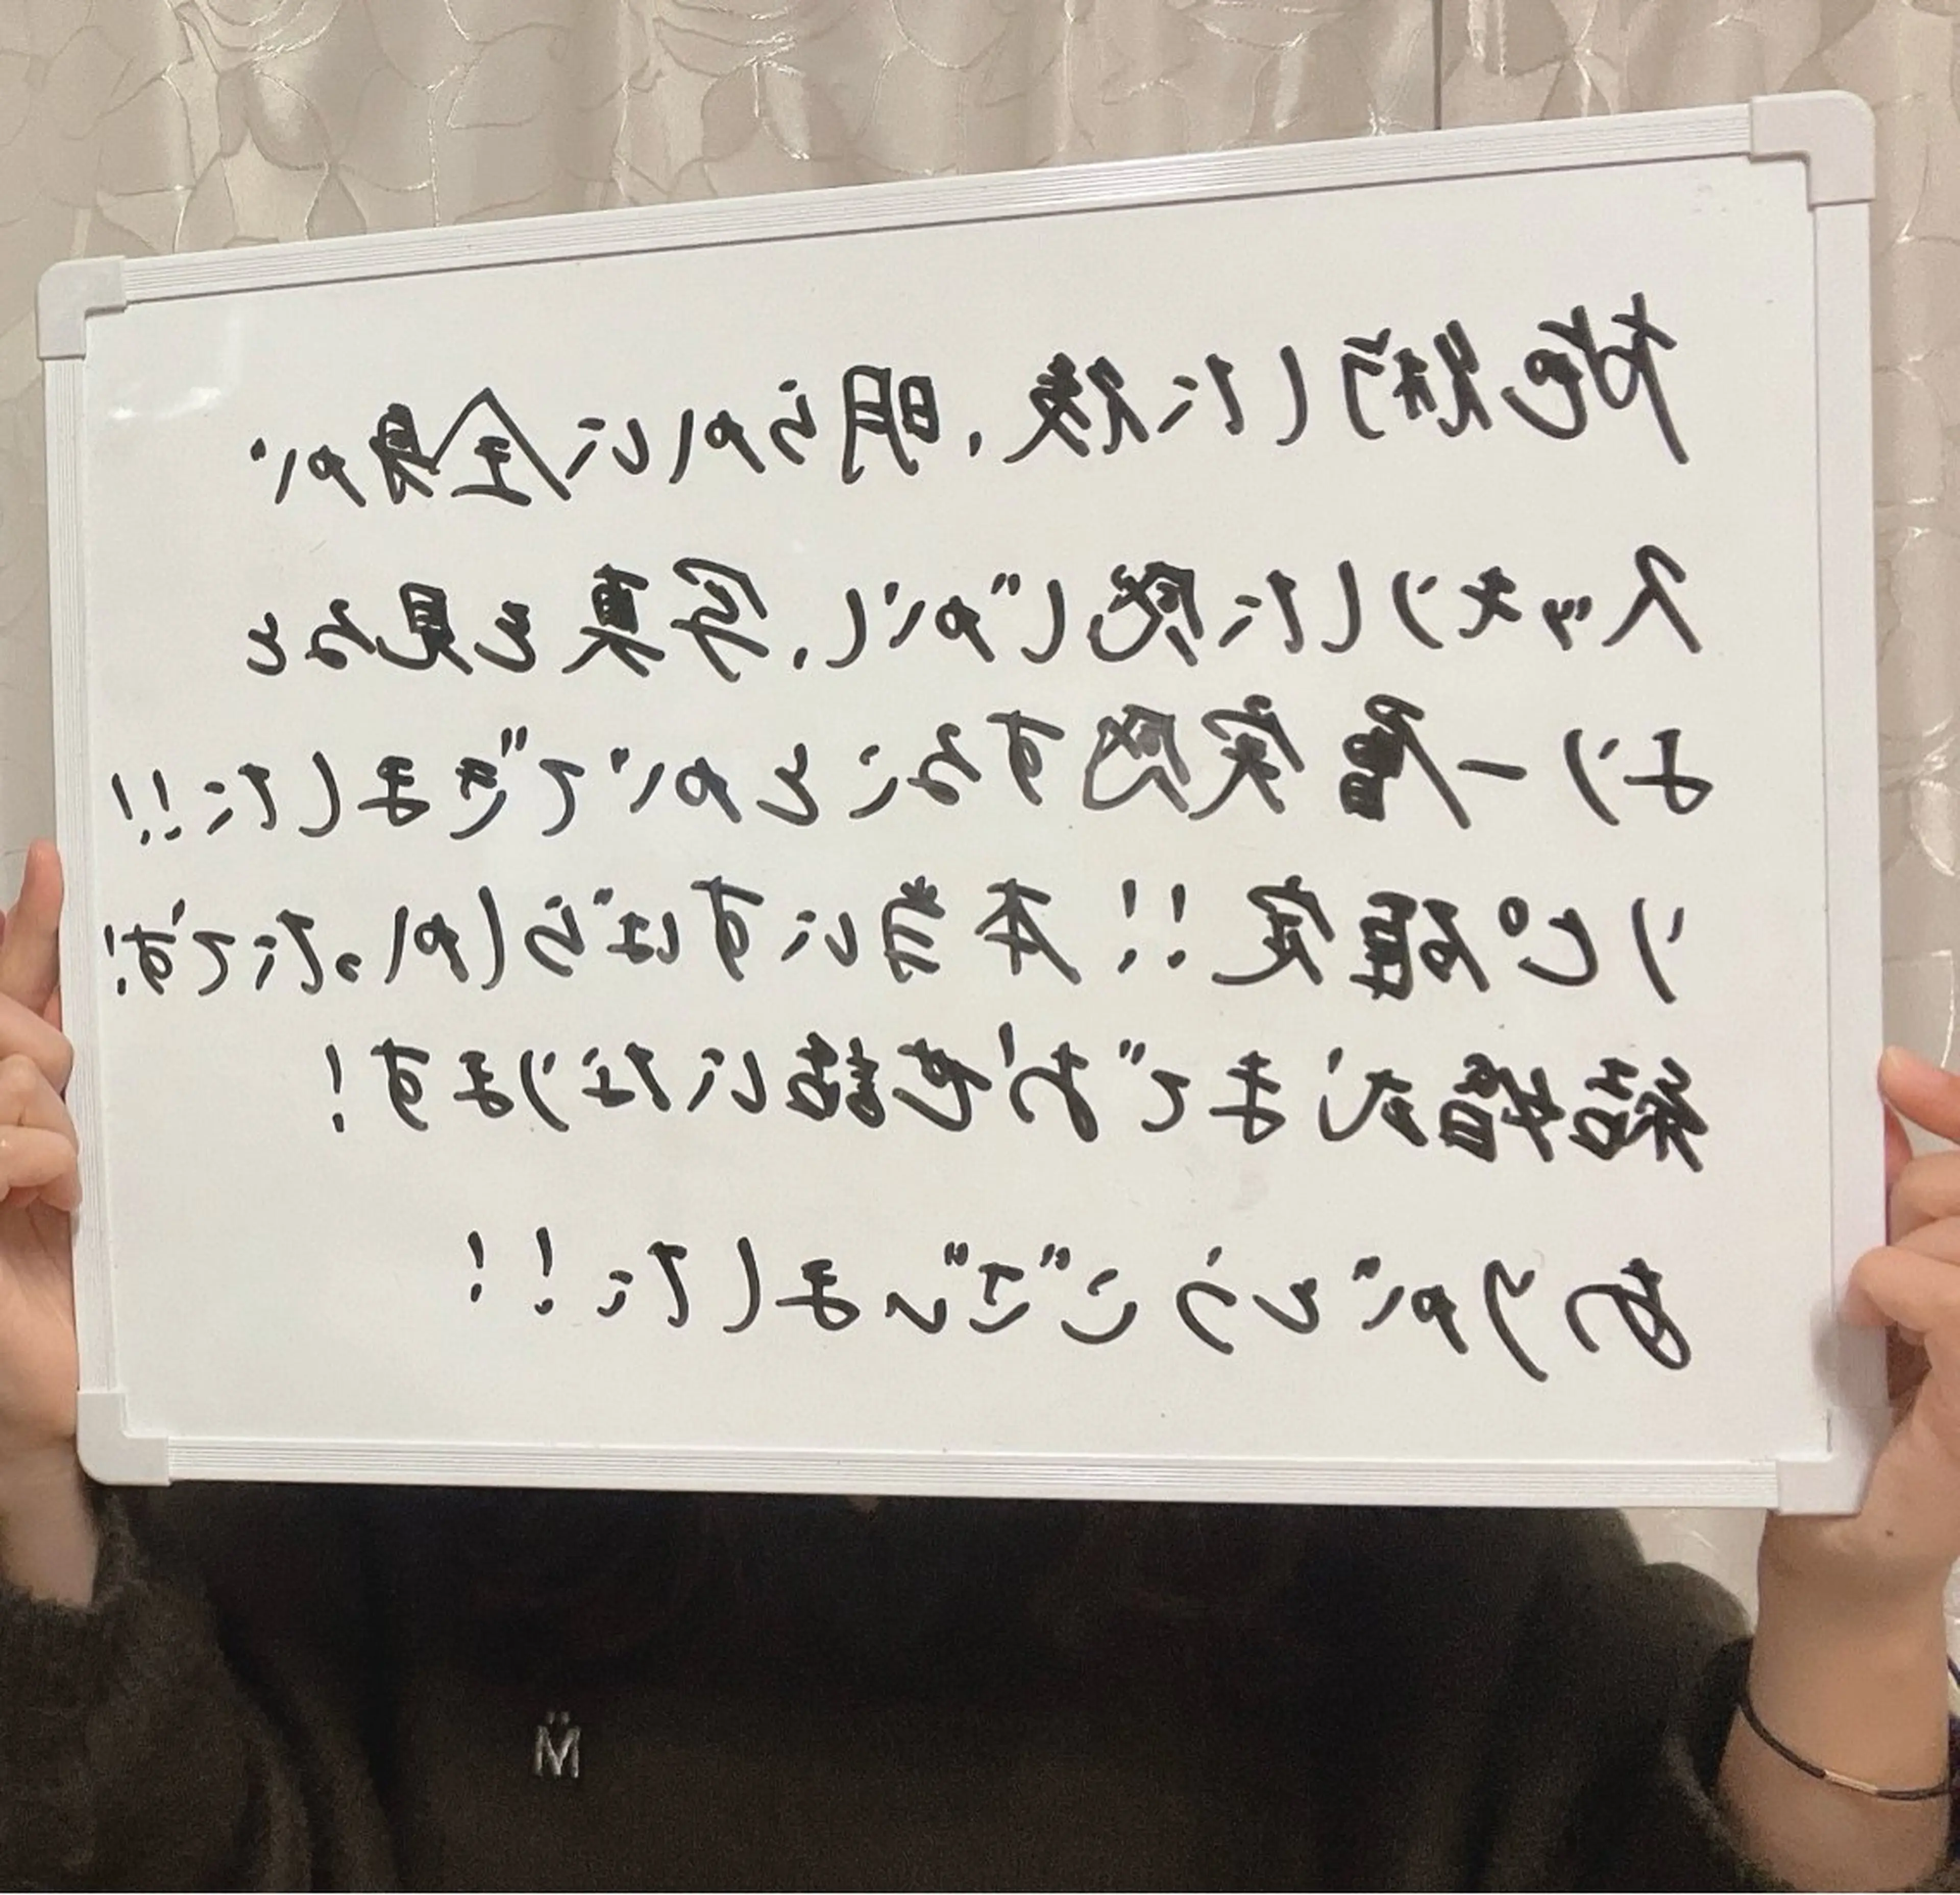 施術した後、明らかに全身が
スッキリした感じがし、写真を見ると
より一層実感することができました!!
リピ確定!! 本当にすばらしかったです!
結婚式までお世話になります!
ありがとうございました!!
M̈